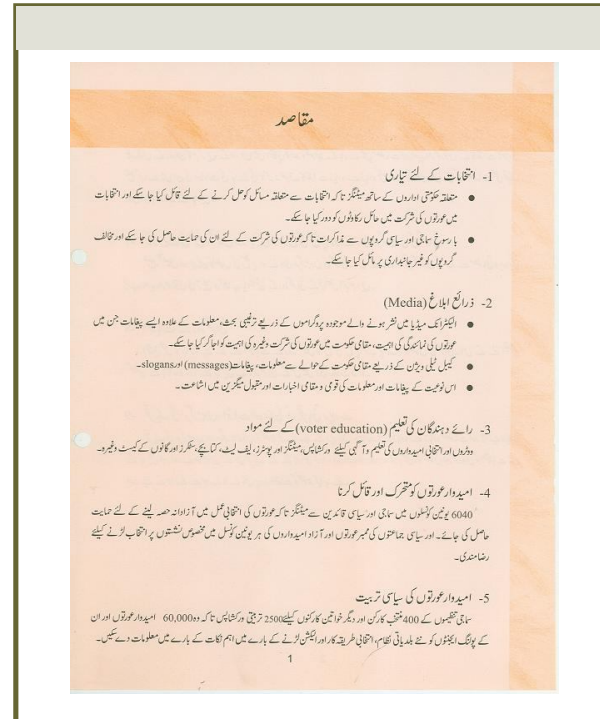 مقاصد
1- انتخابات کے لئے تیاری
● متعلقہ حکومتی اداروں کے ساتھ میٹنگز تاکہ انتخابات سے متعلقہ مسائل کو حل کرنے کے لئے قائل کیا جا سکے اور انتخابات
میں عورتوں کی شرکت میں حائل رکاوٹوں کو دور کیا جا سکے۔
● با رسوخ سماجی اور سیاسی گروپوں سے مذاکرات تاکہ عورتوں کی شرکت کے لئے ان کی حمایت حاصل کی جا سکے اور مخالف
گروپوں کو غیر جانبداری پر مائل کیا جا سکے۔
2- ذرائع ابلاغ (Media)
● الیکٹرانک میڈیا میں نشر ہونے والے موجودہ پروگراموں کے ذریعے ترغیبی بحث، معلومات کے علاوہ ایسے پیغامات جن میں
عورتوں کی نمائندگی کی اہمیت، مقامی حکومت میں عورتوں کی شرکت وغیرہ کی اہمیت کو اجاگر کیا جا سکے۔
● کیبل ٹیلی ویژن کے ذریعے مقامی حکومت کے حوالے سے معلومات، پیغامات (messages) اور slogans۔
● اس نوعیت کے پیغامات اور معلومات کی قومی و مقامی اخبارات اور مقبول میگزین میں اشاعت۔
3- رائے دہندگان کی تعلیم (voter education) کے لئے مواد
ووٹروں اور انتخابی امیدواروں کی تعلیم و آگہی کیلئے ورکشاپس، میٹنگز اور پوسٹرز، لیف لیٹ، کتابچے، سٹکرز اور گانوں کے کیسٹ وغیرہ۔
4- امیدوار عورتوں کو متحرک اور قائل کرنا
6040 یونین کونسلوں میں سماجی اور سیاسی قائدین سے میٹنگز تاکہ عورتوں کی انتخابی عمل میں آزادانہ حصہ لینے کے لئے حمایت
حاصل کی جائے۔ اور سیاسی جماعتوں کی ممبر عورتوں اور آزاد امیدواروں کی ہر یونین کونسل میں مخصوص نشستوں پر انتخاب لڑنے کیلئے
رضامندی۔
5- امیدوار عورتوں کی سیاسی تربیت
سماجی تنظیموں کے 400 منتخب کارکن اور دیگر خواتین کارکنوں کیلئے 2500 تربیتی ورکشاپس تاکہ وہ 60,000 امیدوار عورتوں اور ان
کے پولنگ ایجنٹوں کو نئے بلدیاتی نظام، انتخابی طریقہ کار اور الیکشن لڑنے کے بارے میں اہم نکات کے بارے میں معلومات دے سکیں۔
1